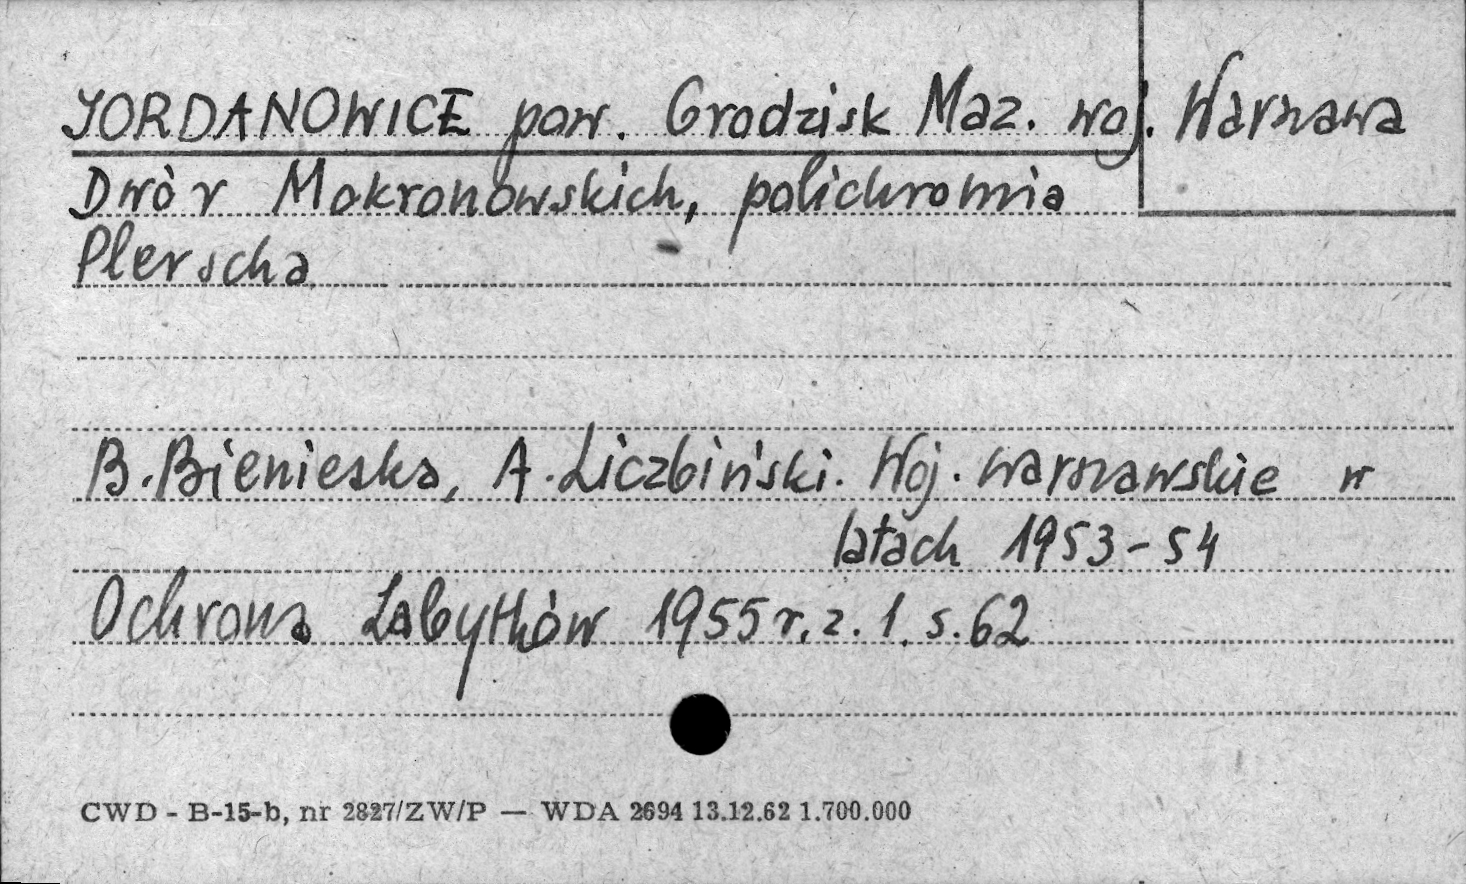 JORDANOWICE pow. Grodzisk Maz. woj. Warszawa
Dwór Mokronowskich, polichromia
Plerscha
B. Bienieska, A. Liczbiński. Woj. warszawskie w
latach 1953-54
Ochrona Zabytków 1955 r. z. 1. s. 62
CWD - B-15-b, nr 2827/ZW/P — WDA 2694 13.12.62 1.700.000